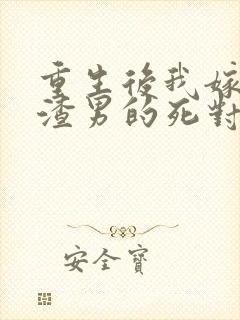 重生後我嫁
渣男的死對
安全寶